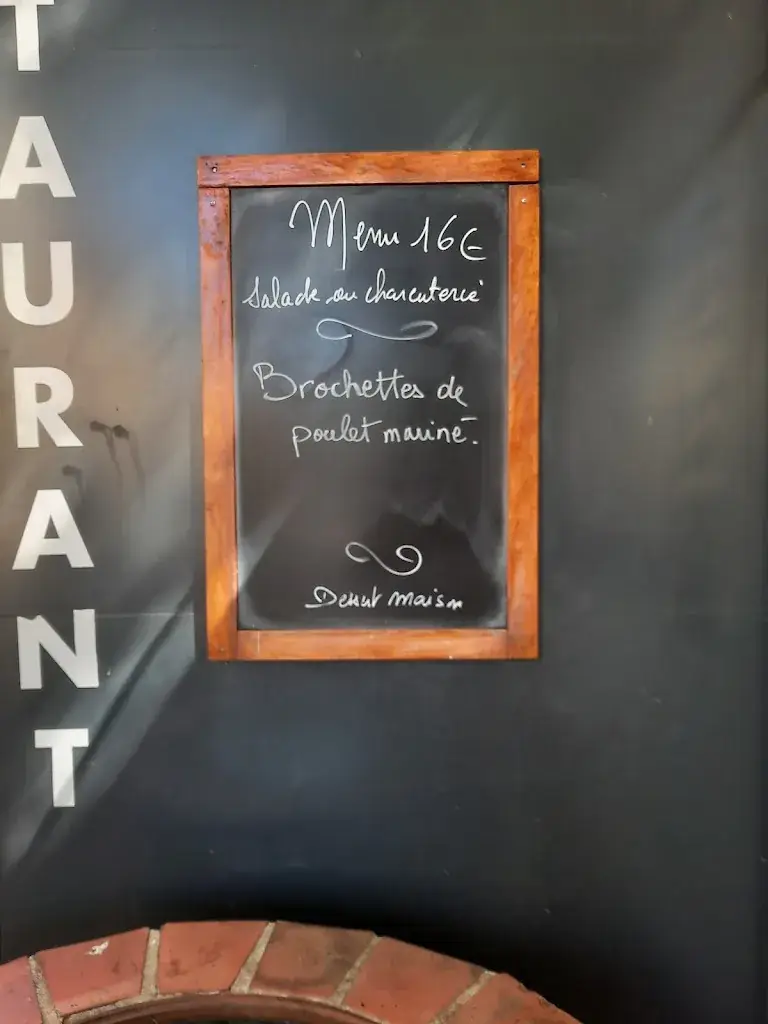 TAURANT
Menu 16€
Salade ou charcuterie
Brochettes de
poulet mariné.
Dessert maison